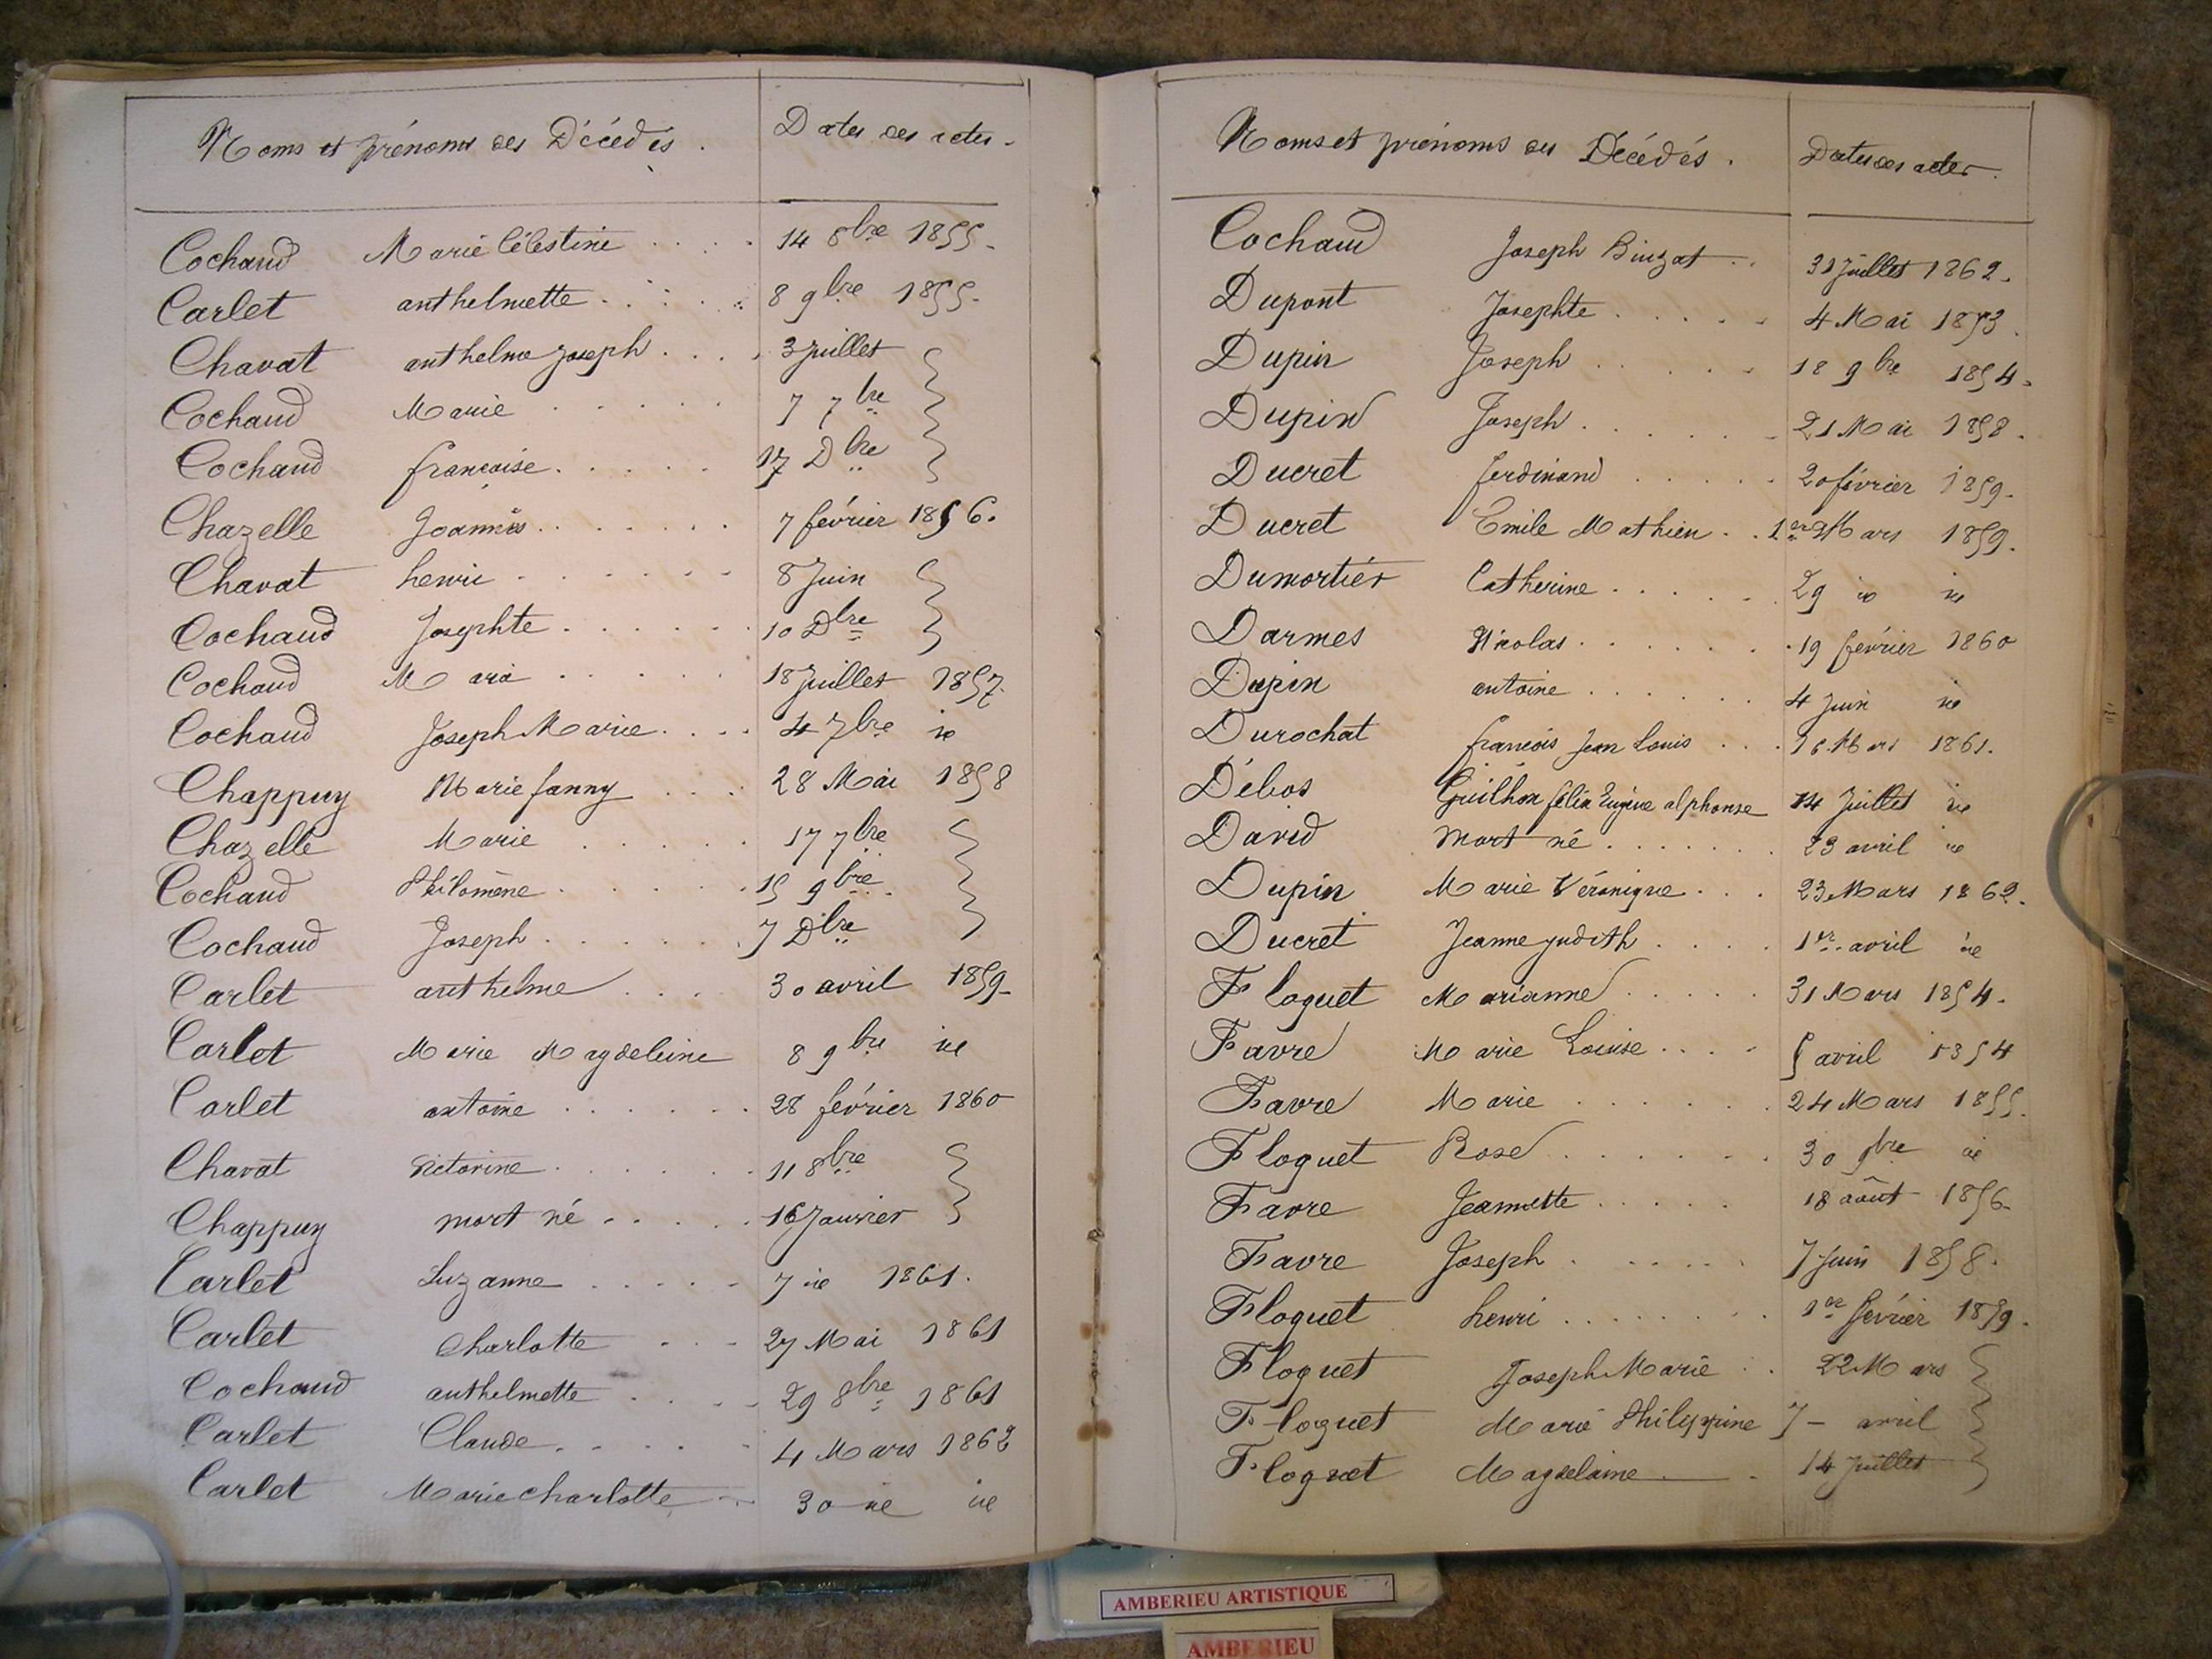 Noms et prénoms des Décédés. Dates des actes.
Cochaud Marie Célestine 14 8bre 1855.
Carlet anthelmette 8 9bre 1855.
Chavat anthelme joseph 3 juillet
Cochaud Marie 7 7bre
Cochaud françoise 17 Dbre
Chazelle Joannès 7 février 1856.
Chavat henri 8 Juin
Cochaud Josephte 10 Dbre
Cochaud Marie 18 juillet 1857
Cochaud Joseph Marie 4 7bre id
Chappuy Marie fanny 28 Mai 1858
Chazelle Marie 17 7bre
Cochaud Philomène 15 9bre
Cochaud Joseph 7 Dbre
Carlet anthelme 30 avril 1859
Carlet Marie Magdeleine 8 9bre id
Carlet antoine 28 février 1860
Chavat Victorine 11 8bre
Chappuy mort né 16 Janvier
Carlet Suzanne 7 id 1861.
Carlet Charlotte 27 Mai 1861
Cochaud anthelmette 29 8bre 1861
Carlet Claude 4 Mars 1862
Carlet Marie charlotte 30 id id
Noms et prénoms des Décédés. Dates des actes.
Cochaud Joseph 31 Juillet 1862.
Dupont Josephte 4 Mai 1853.
Dupin Joseph 18 9bre 1854.
Dupin Joseph 21 Mai 1858.
Ducret ferdinand 20 février 1859.
Ducret Emile Mathieu 1er Mars 1859.
Dumortier Catherine 29 id id
Darmes Nicolas 19 février 1860
Dupin antoine 4 Juin id
Durochat françois Jean Louis Mars 1861.
Débos Guilhon félix Eugène alphonse 14 Juillet id
David mort né 23 avril id
Dupin Marie Véronique 23 Mars 1862.
Ducret Jeanne judith 1er avril id
Floquet Marianne 31 Mars 1854.
Favre Marie Louise 5 avril 1854
Favre Marie 24 Mars 1855.
Floquet Rose 30 9bre id
Favre Jeannette 18 août 1856
Favre Joseph 7 Juin 1858.
Floquet henri 1er février 1859.
Floquet Joseph Marie 22 Mars
Floquet Marie Philippine 7 avril
Floquet Magdelaine 14 Juillet
AMBERIEU ARTISTIQUE
AMBERIEU